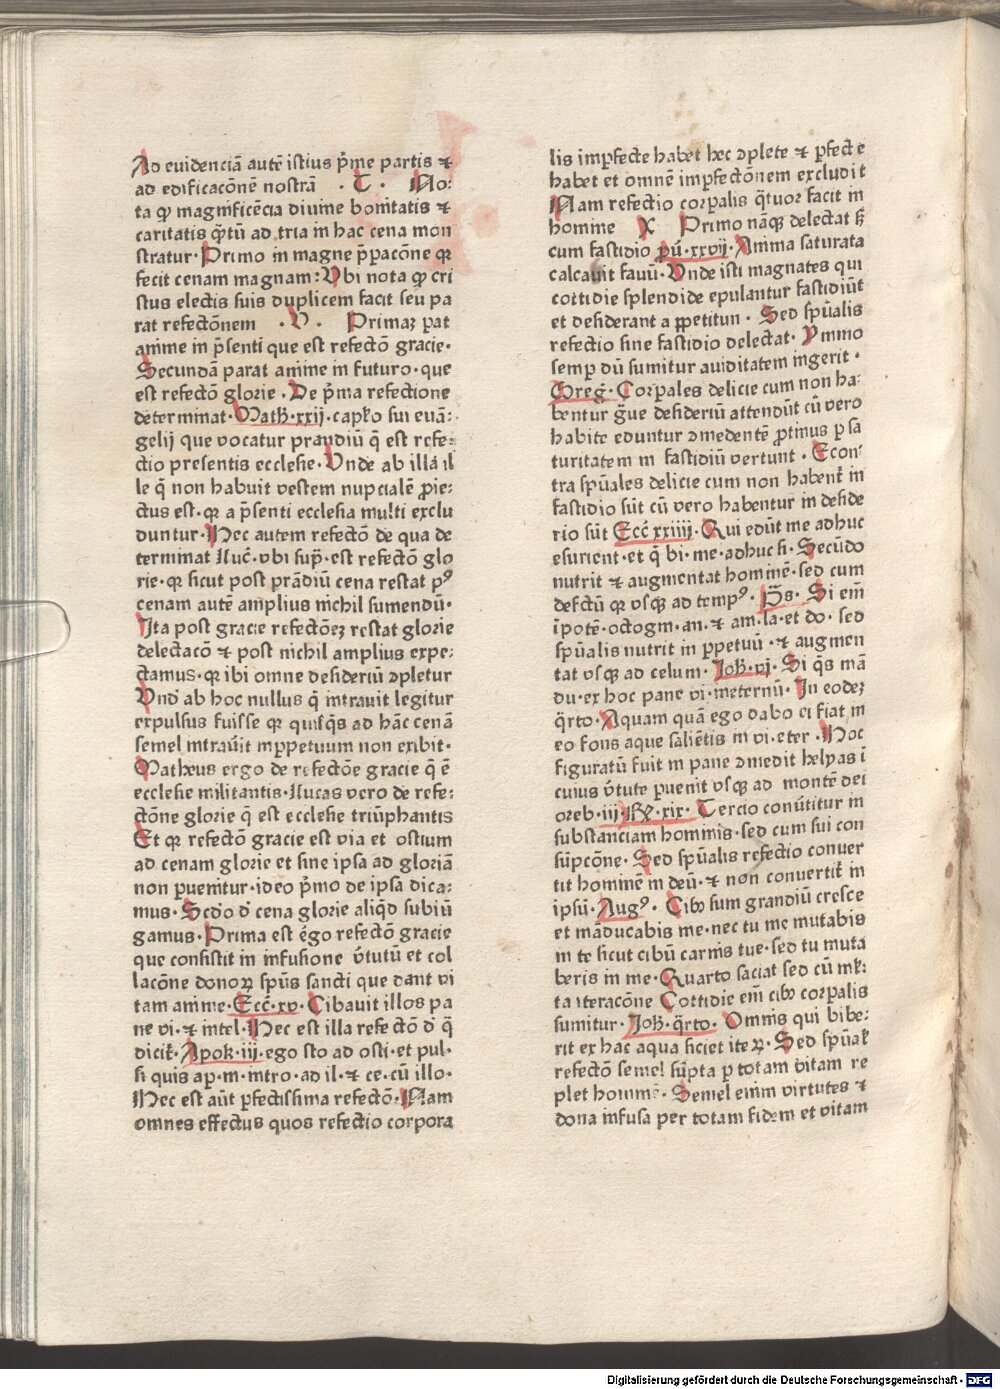 Ad evidenciā autē istius p̄me partis ⁊
ad edificacōnē nostrā · T · No⸗
ta ꝙ magnificēcia divine bonitatis ⁊
caritatis q̄tū ad tria in hac cena mon
stratur· Primo in magne p̄pacōne qꝛ
fecit cenam magnam: Vbi nota ꝙ cri
stus electis suis duplicem facit seu pa
rat refectōnem · V · Primaꝫ pat
anime in p̄senti que est refectō gracie·
Secundā parat anime in futuro· que
est refectō glorie · De p̄ma refectione
determinat· Math̄·xxij· capl̄o sui euā⸗
gelij que vocatur prandiū q̄ est refe⸗
ctio presentis ecclesie· Vnde ab illa il
le q̄ non habuit vestem nupcialē ꝓie⸗
ctus est· qꝛ a p̄senti ecclesia multi exclu
duntur· Hec autem refectō de qua de
terminat Luc̄· vbi sup̄· est refectō glo
rie· qꝛ sicut post prādiū cena restat pꝰ
cenam autē amplius nichil sumendū·
Ita post gracie refectōeꝫ restat glorie
delectacō ⁊ post nichil amplius expe⸗
ctamus· qꝛ ibi omne desideriū ꝯpletur
Vnd̄ ab hoc nullus q̄ intrauit legitur
expulsus fuisse qꝛ quisq̄s ad hāc cenā
semel intrauit inꝑpetuum non exibit·
Matheus ergo de refectōe gracie q̄ ē
ecclesie militantis· Lucas vero de refe⸗
ctōne glorie q̄ est ecclesie triūphantis
Et qꝛ refectō gracie est via et ostium
ad cenam glorie et sine ipsa ad gloriā
non ꝑuenitur· ideo p̄mo de ipsa dica⸗
mus· Scd̄o d̄ cena glorie aliq̄d subiū
gamus· Prima est ēgo refectō gracie
que consistit in infusione v̄tutū et col
lacōne donoꝝ sp̄us sancti que dant vi
tam anime· Ecc̄·xv· Cibauit illos pa
ne vi· ⁊ intel· Hec est illa refectō d̄ q̄
dicit̄· Apok·iij· ego sto ad osti· et pul·
si quis ap· m· intro· ad il· ⁊ ce· cū illo·
Hec est aūt ꝑfectissima refectō· Nam
omnes effectus quos refectio corpora
lis imꝑfecte habet hec ꝯplete ⁊ ꝑfecte
habet et omnē imꝑfectōnem excludit
Nam refectio corꝑalis q̄tuor facit in
homine X Primo nāqꝫ delectat sꝫ
cum fastidio pū·xxvij· Anima saturata
calcauit fauū· Vnde isti magnates qui
cottidie splendide epulantur fastidiūt
et desiderant a ꝓpetitun · Sed sp̄ualis
refectio sine fastidio delectat· Ymmo
semꝑ dū sumitur auiditatem ingerit ·
Greḡ· Corꝑales delicie cum non ha⸗
bentur ḡue desideriū attendūt cū vero
habite eduntur ꝯmedentē ꝓtinus ꝑ sa
turitatem in fastidiū vertunt · Econ⸗
tra sp̄uales delicie cum non habent̄ in
fastidio sūt cū vero habentur in deside
rio sūt Ecc̄ xxiiij· Qui edūt me adhuc
esurient· et q̄ bi· me· adhuc si· Secūdo
nutrit ⁊ augmentat hominē· sed cum
defctū qꝛ vsqꝫ ad tempꝰ· P̄s· Si em̄
īpotē· octogin· an· ⁊ am· la· et do· sed
sp̄ualis nutrit in ꝑpetuū · ⁊ augmen
tat vsqꝫ ad celum· Joh̄·vj· Si q̄s mā
du· ex hoc pane vi· ineternū· In eodeꝫ
q̄rto· Aquam quā ego dabo ei fiat in
eo fons aque saliētis in vi· eter · Hoc
figuratū fuit in pane ꝯmedit helyas ī
cuius v̄tute ꝑuenit vsqꝫ ad montē dei
oreb· iij· R̄e·xix· Tercio conūtitur in
substanciam hominis· sed cum sui con
sūpcōne· Sed sp̄ualis refectio conuer
tit hominē in deū· ⁊ non conuertit̄ in
ipsū· Augꝰ· Cibꝰ sum grandiū cresce
et māducabis me· nec tu me mutabis
in te sicut cibū carnis tue· sed tu muta
beris in me· Quarto saciat sed cū ml̄⸗
ta iteracōne Cottidie em̄ cibꝰ corꝑalis
sumitur· Joh̄· q̄rto· Omnis qui bibe⸗
rit ex hac aqua siciet iteꝝ· Sed sp̄ual̄
refectō semel sūpta ꝑ totam vitam re
plet hominē· Semel enim virtutes ⁊
dona infusa per totam fidem et vitam
Digitalisierung gefördert durch die Deutsche Forschungsgemeinschaft - DFG